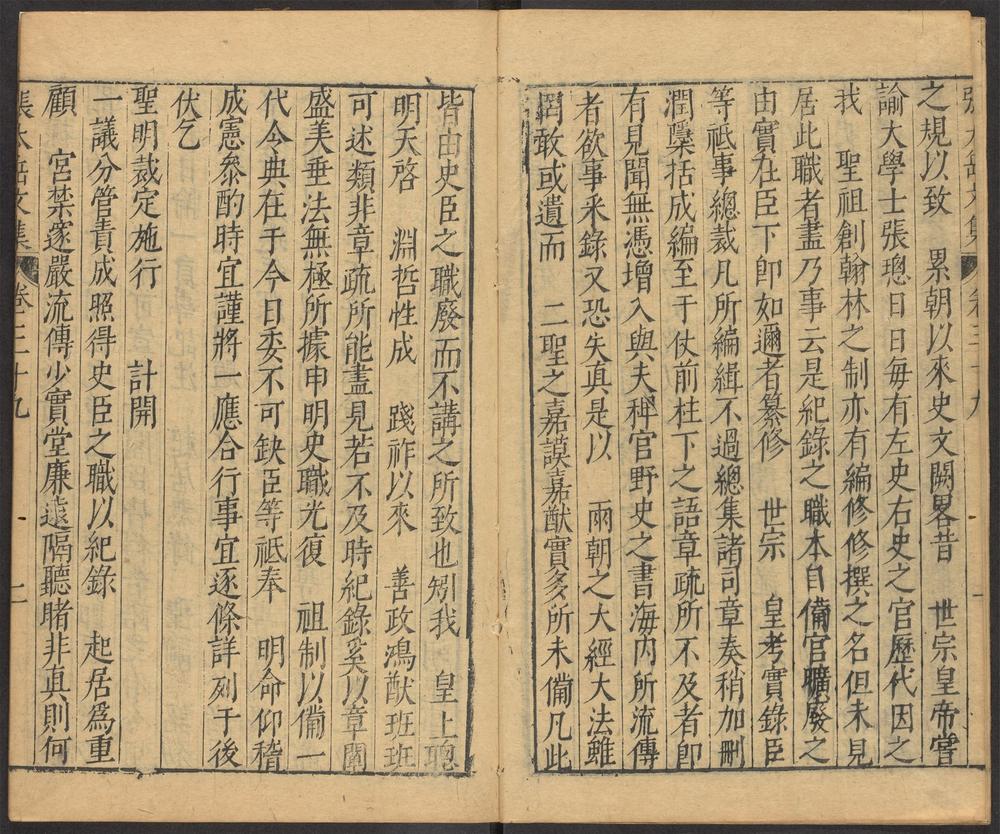 張太岳文集　卷三十九
之規以致　累朝以來史文闕畧昔　世宗皇帝嘗
諭大學士張璁曰日每有左史右史之官歷代因之
我　聖祖創翰林之制亦有編修修撰之名但未見
居此職者盡乃事云是紀錄之職本自備官曠廢之
由實在臣下即如邇者纂修　世宗　皇考實錄臣
等祗事總裁凡所編緝不過總集諸司章奏稍加刪
潤檃括成編至于仗前柱下之語章疏所不及者即
有見聞無憑增入與夫稗官野史之書海內所流傳
者欲事采錄又恐失真是以　兩朝之大經大法雖
罔敢或遺而　二聖之嘉謨嘉猷實多所未備凡此
皆由史臣之職廢而不講之所致也矧我　皇上聰
明天啓　淵哲性成　踐祚以來　善政鴻猷班班
可述類非章疏所能盡見若不及時紀錄奚以章闡
盛美垂法無極所據申明史職光復　祖制以備一
代令典在于今日委不可缺臣等祗奉　明命仰稽
成憲叅酌時宜謹將一應合行事宜逐條詳列于後
伏乞
聖明裁定施行　計開
一議分管責成照得史臣之職以紀錄　起居爲重
顧　宮禁邃嚴流傳少實堂廉遠隔聽睹非真則何
張太岳文集　卷三十九　二